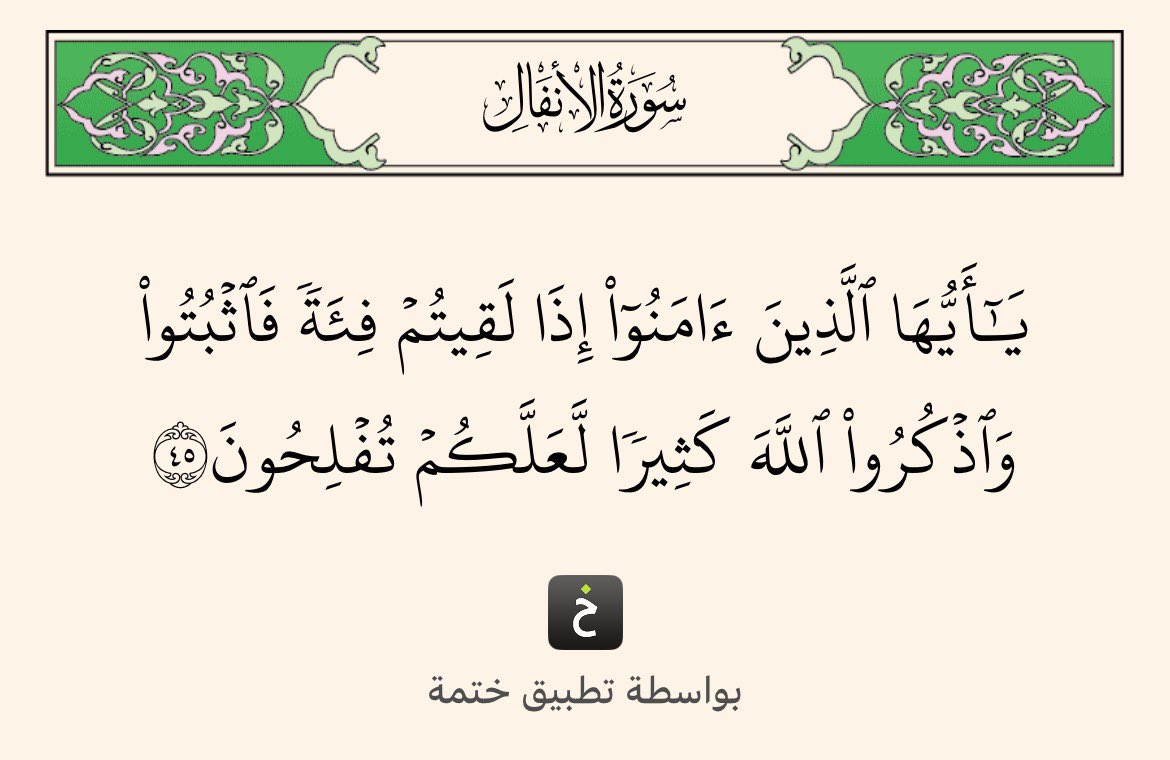 سُورَةُ الأَنفَالِ
يَـٰٓأَيُّهَا ٱلَّذِينَ ءَامَنُوٓا۟ إِذَا لَقِيتُمْ فِئَةًۭ فَٱثْبُتُوا۟
وَٱذْكُرُوا۟ ٱللَّهَ كَثِيرًۭا لَّعَلَّكُمْ تُفْلِحُونَ ٤٥
خ
بواسطة تطبيق ختمة